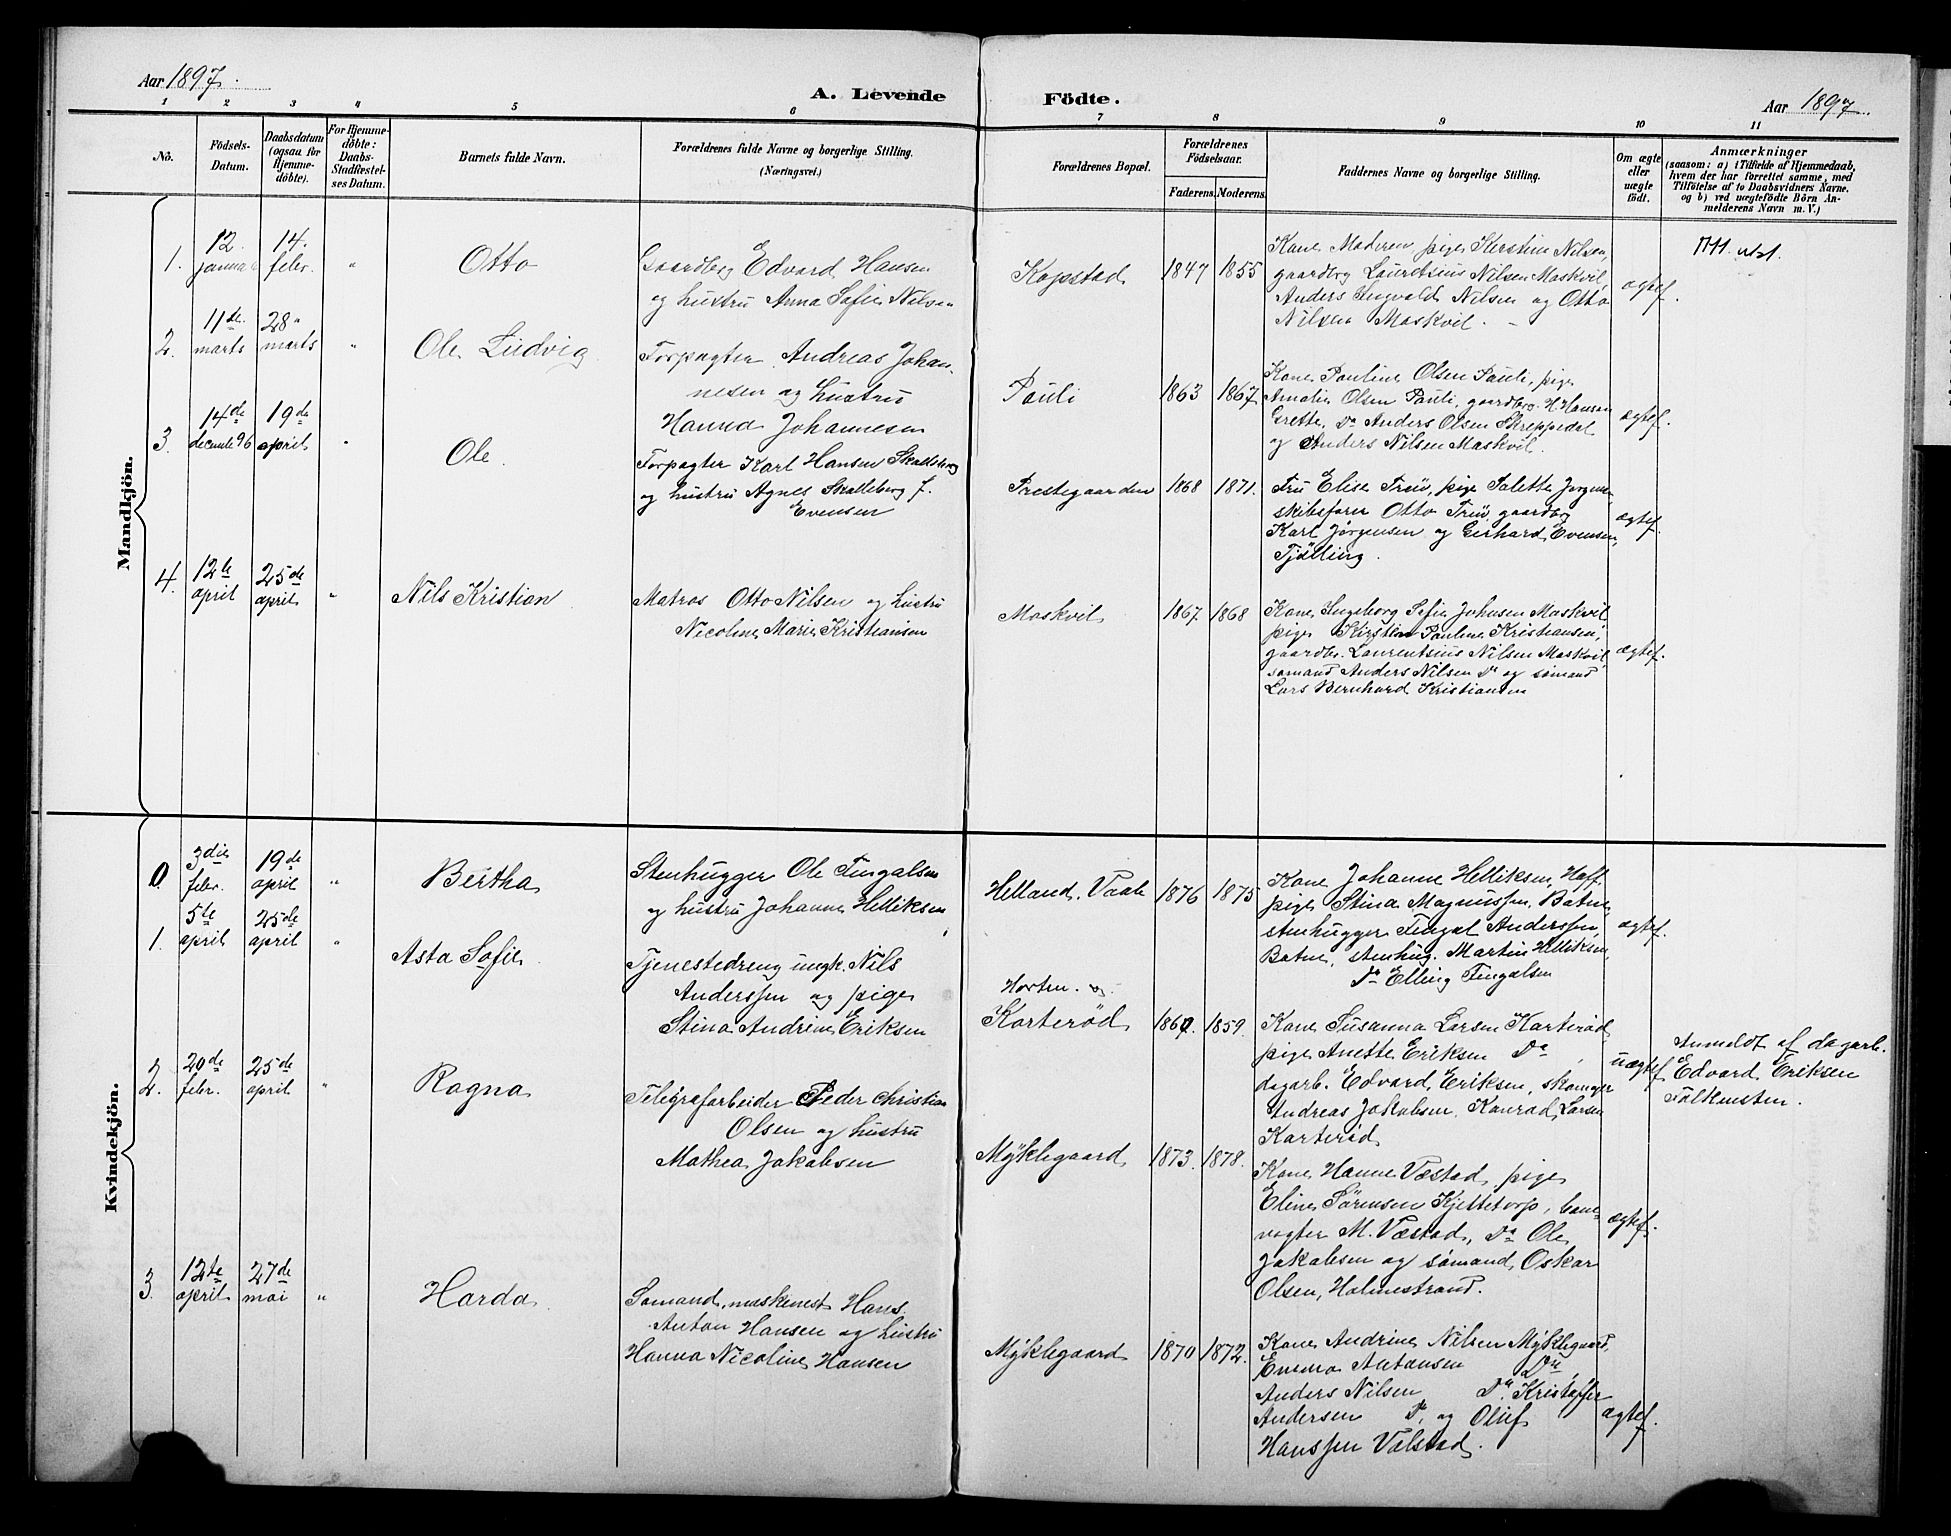 Aar 1897.
A. Levende Födte.
Aar 1897.
1 2 3 4 5 6 7 8 9 10 11
No.
Födsels-
Datum.
Daabsdatum
(ogsaa for
Hjemme-
döbte).
For Hjemme-
döbte:
Daabs-
Stadfæstel-
ses Datum.
Barnets fulde Navn.
Forældrenes fulde Navne og borgerlige Stilling.
(Næringsvei.)
Forældrenes Bopæl.
Forældrenes
Födselsaar.
Faderens. Moderens.
Faddernes Navne og borgerlige Stilling.
Om ægte
eller
uægte
födt.
Anmærkninger
(saasom: a) i Tilfælde af Hjemmedaab,
hvem der har forrettet samme, med
Tilföielse af to Daabsvidners Navne.
og b) ved uægtefödte Börn An-
melderens Navn m. V.)
Mandkjön.
1. 12. januar 14. febr. " Otto
Gaardbg Edvard Hansen
og hustru Anna Sofie Nilsen
Kopstad 1847 1855
Kone Moderen, pige Kerstine Nilsen,
gaardbg Lauretsius Nilsen Maskvil,
Anders Ingvald Nilsen og Otto
Nilsen Maskvil.
ægtef.
2. 11te marts 28. marts " Ole Ludvig
Forpagter Andreas Johan-
nesen og hustru
Hanna Johannesen
Pauli 1863 1867
Kone Pauline Olsen Pauli, pige
Amalie Olsen Pauli, gaardbg. H. Hansen
Grette, Do Anders Olsen Skreppedal
og Anders Nilsen Maskvil.
ægtef.
3. 14de decembr 96 19de april " Ole
Forpagter Karl Hansen Skalleberg
og hustru Agnes Skalleberg f.
Evensen
Prestegaarden 1868 1871.
Fru Elise Treu, pige Valette Jorgens
skibsfører Otto Treu, gaardbg
Karl Jørgensen og Gerhard Evensen,
Tjølling.
ægtef.
4. 12te april 25de april " Nils Kristian
Matros Otto Nilsen og hustru
Nicoline Marie Kristiansen
Maskvil 1867 1868
Kone Ingeborg Sofie Johnsen Maskvil
pige Kirstine Pauline Kristiansen,
gaardbr. Laurentsius Nilsen Maskvil
sømand Anders Nilsen Do og sømand
Lars Bernhard Kristiansen
ægtef.
Kvindekjön.
0 3die febr. 19de april " Bertha
Stenhugger Ole Fingalsen
og hustru Johanne Helliksen
Helland, Vaale 1876 1875
Kone Johanne Helliksen, Haff
pige Stina Magnussen, Batne,
stenhugger Fingal Anderssen,
Batne, stenhug. Martin Helliksen,
Do Elling Fingalsen
ægtef.
1. 5te april 25de april " Asta Sofie
Tjenestedreng ungk. Nils
Anderssen og pige
Stina Andrine Eriksen
Horten. og
Korterød 1859.
Kone Susanna Larsen Karterød
pige Anette Eriksen Do
dagarb. Edvard Eriksen, skomager
Andreas Jakobsen, Konrad Larsen
Karterød
uægtef
Anmeldt af dagarb.
Edvard Eriksen
Falkensten.
2. 20de febr. 25de april " Ragna
Telegrafarbeider Peder Christian
Olsen og hustru
Mathea Jakobsen
Mÿklegaard 1873. 1878.
Kone Hanne Væstad, pige
Eline Sørensen Kjettetorp, bane-
vogter M. Væstad, Do Ole
Jakobsen og sømand Oskar
Olsen, Holmestrand.
ægtef.
3. 12te april 27de mai " Harda
Sømand, maskenest Hans
Anton Hansen og hustru
Hanna Nicoline Hansen
Mÿklegaard 1870 1872.
Kone Andrine Nilsen Mÿklegaard,
Emma Antonsen Do,
Anders Nilsen Do, Kristoffer
Andersen Do, og Oluf
Hanssen Valstad.
ægtef.